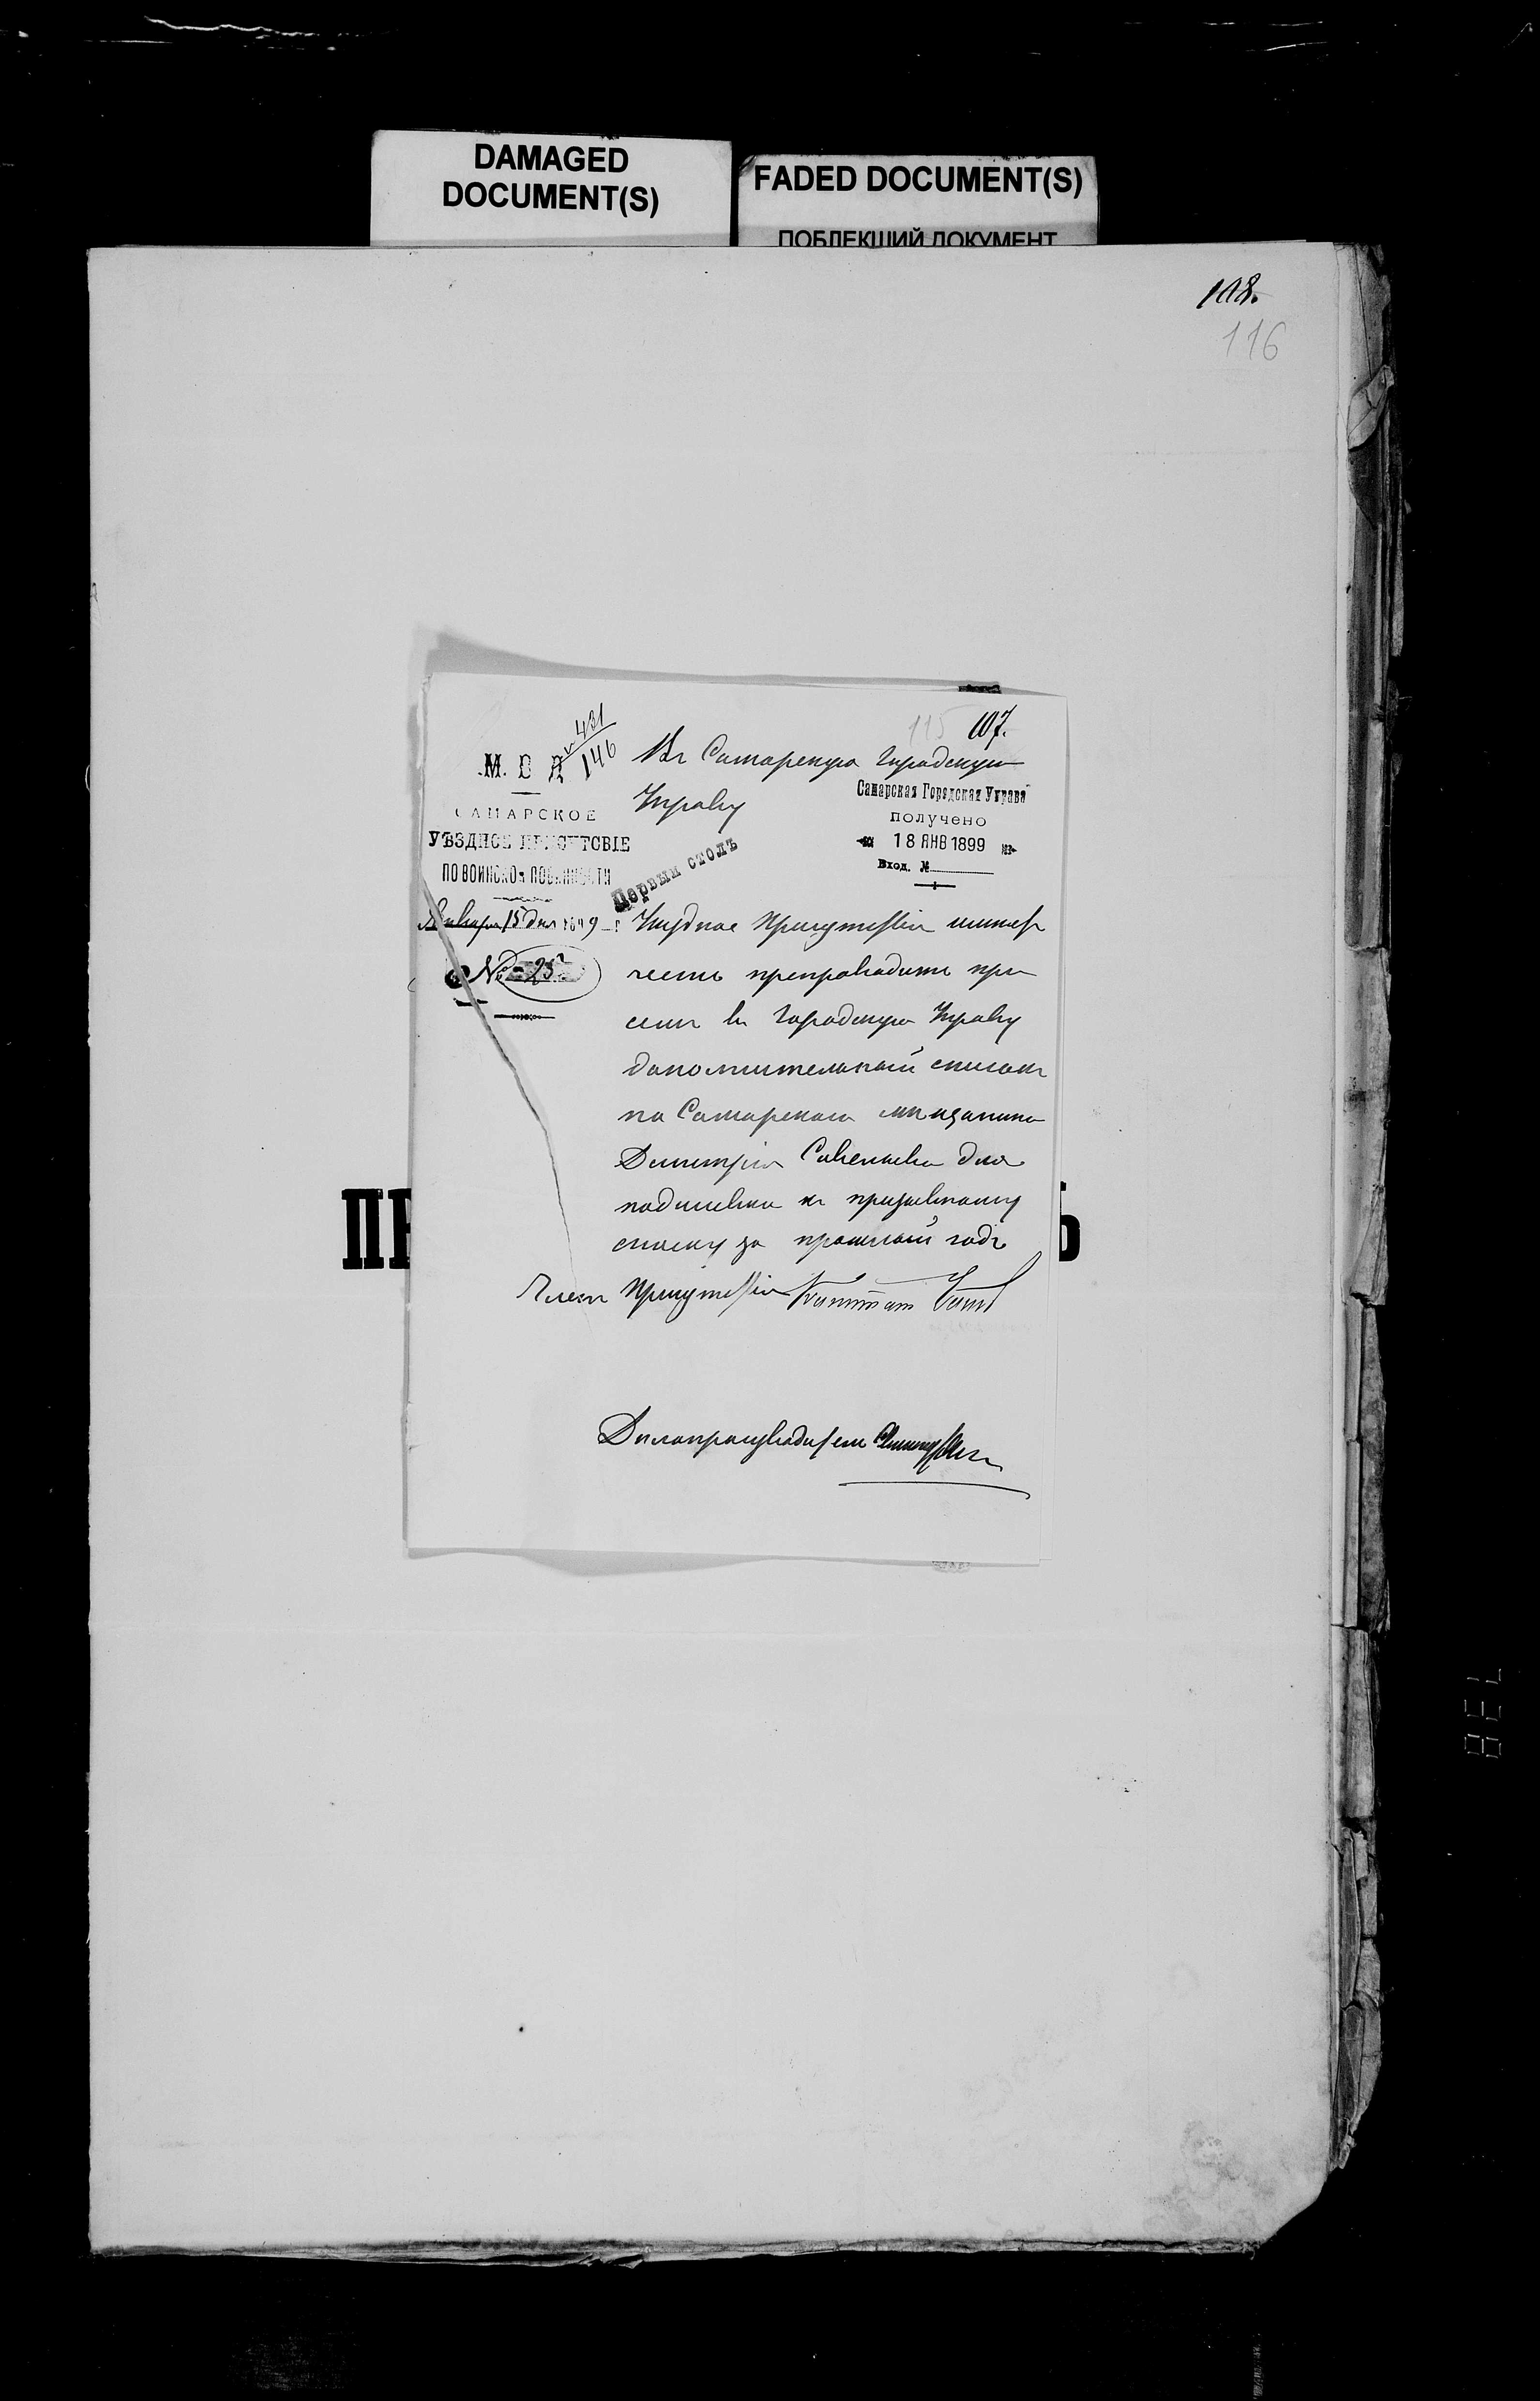 DAMAGED
DOCUMENT(S)
FADED DOCUMENT(S)
ПОБЛЕКШИЙ ДОКУМЕНТ
108.
116
115 107.
431
146
М. В. Д
САМАРСКОЕ
УѢЗДНОЕ ПРИСУТСТВІЕ
ПО ВОИНСКОЙ ПОВИННОСТИ
Января 15 дня 1899 г
№ 25
Въ Самарскую Городскую
Управу
Самарская Городская Управа
получено
18 ЯНВ 1899
Вход. №
Первый столъ
Уѣздное Присутствіе имѣетъ
честь препроводить при
семъ въ Городскую Управу
дополнительный списокъ
на Самарскаго мѣщанина
Димитрія Савельева для
подшивки къ призывному
списку за прошлый годъ
Членъ Присутствія Капитанъ
Дѣлопроизводитель
ПР
Ь
738